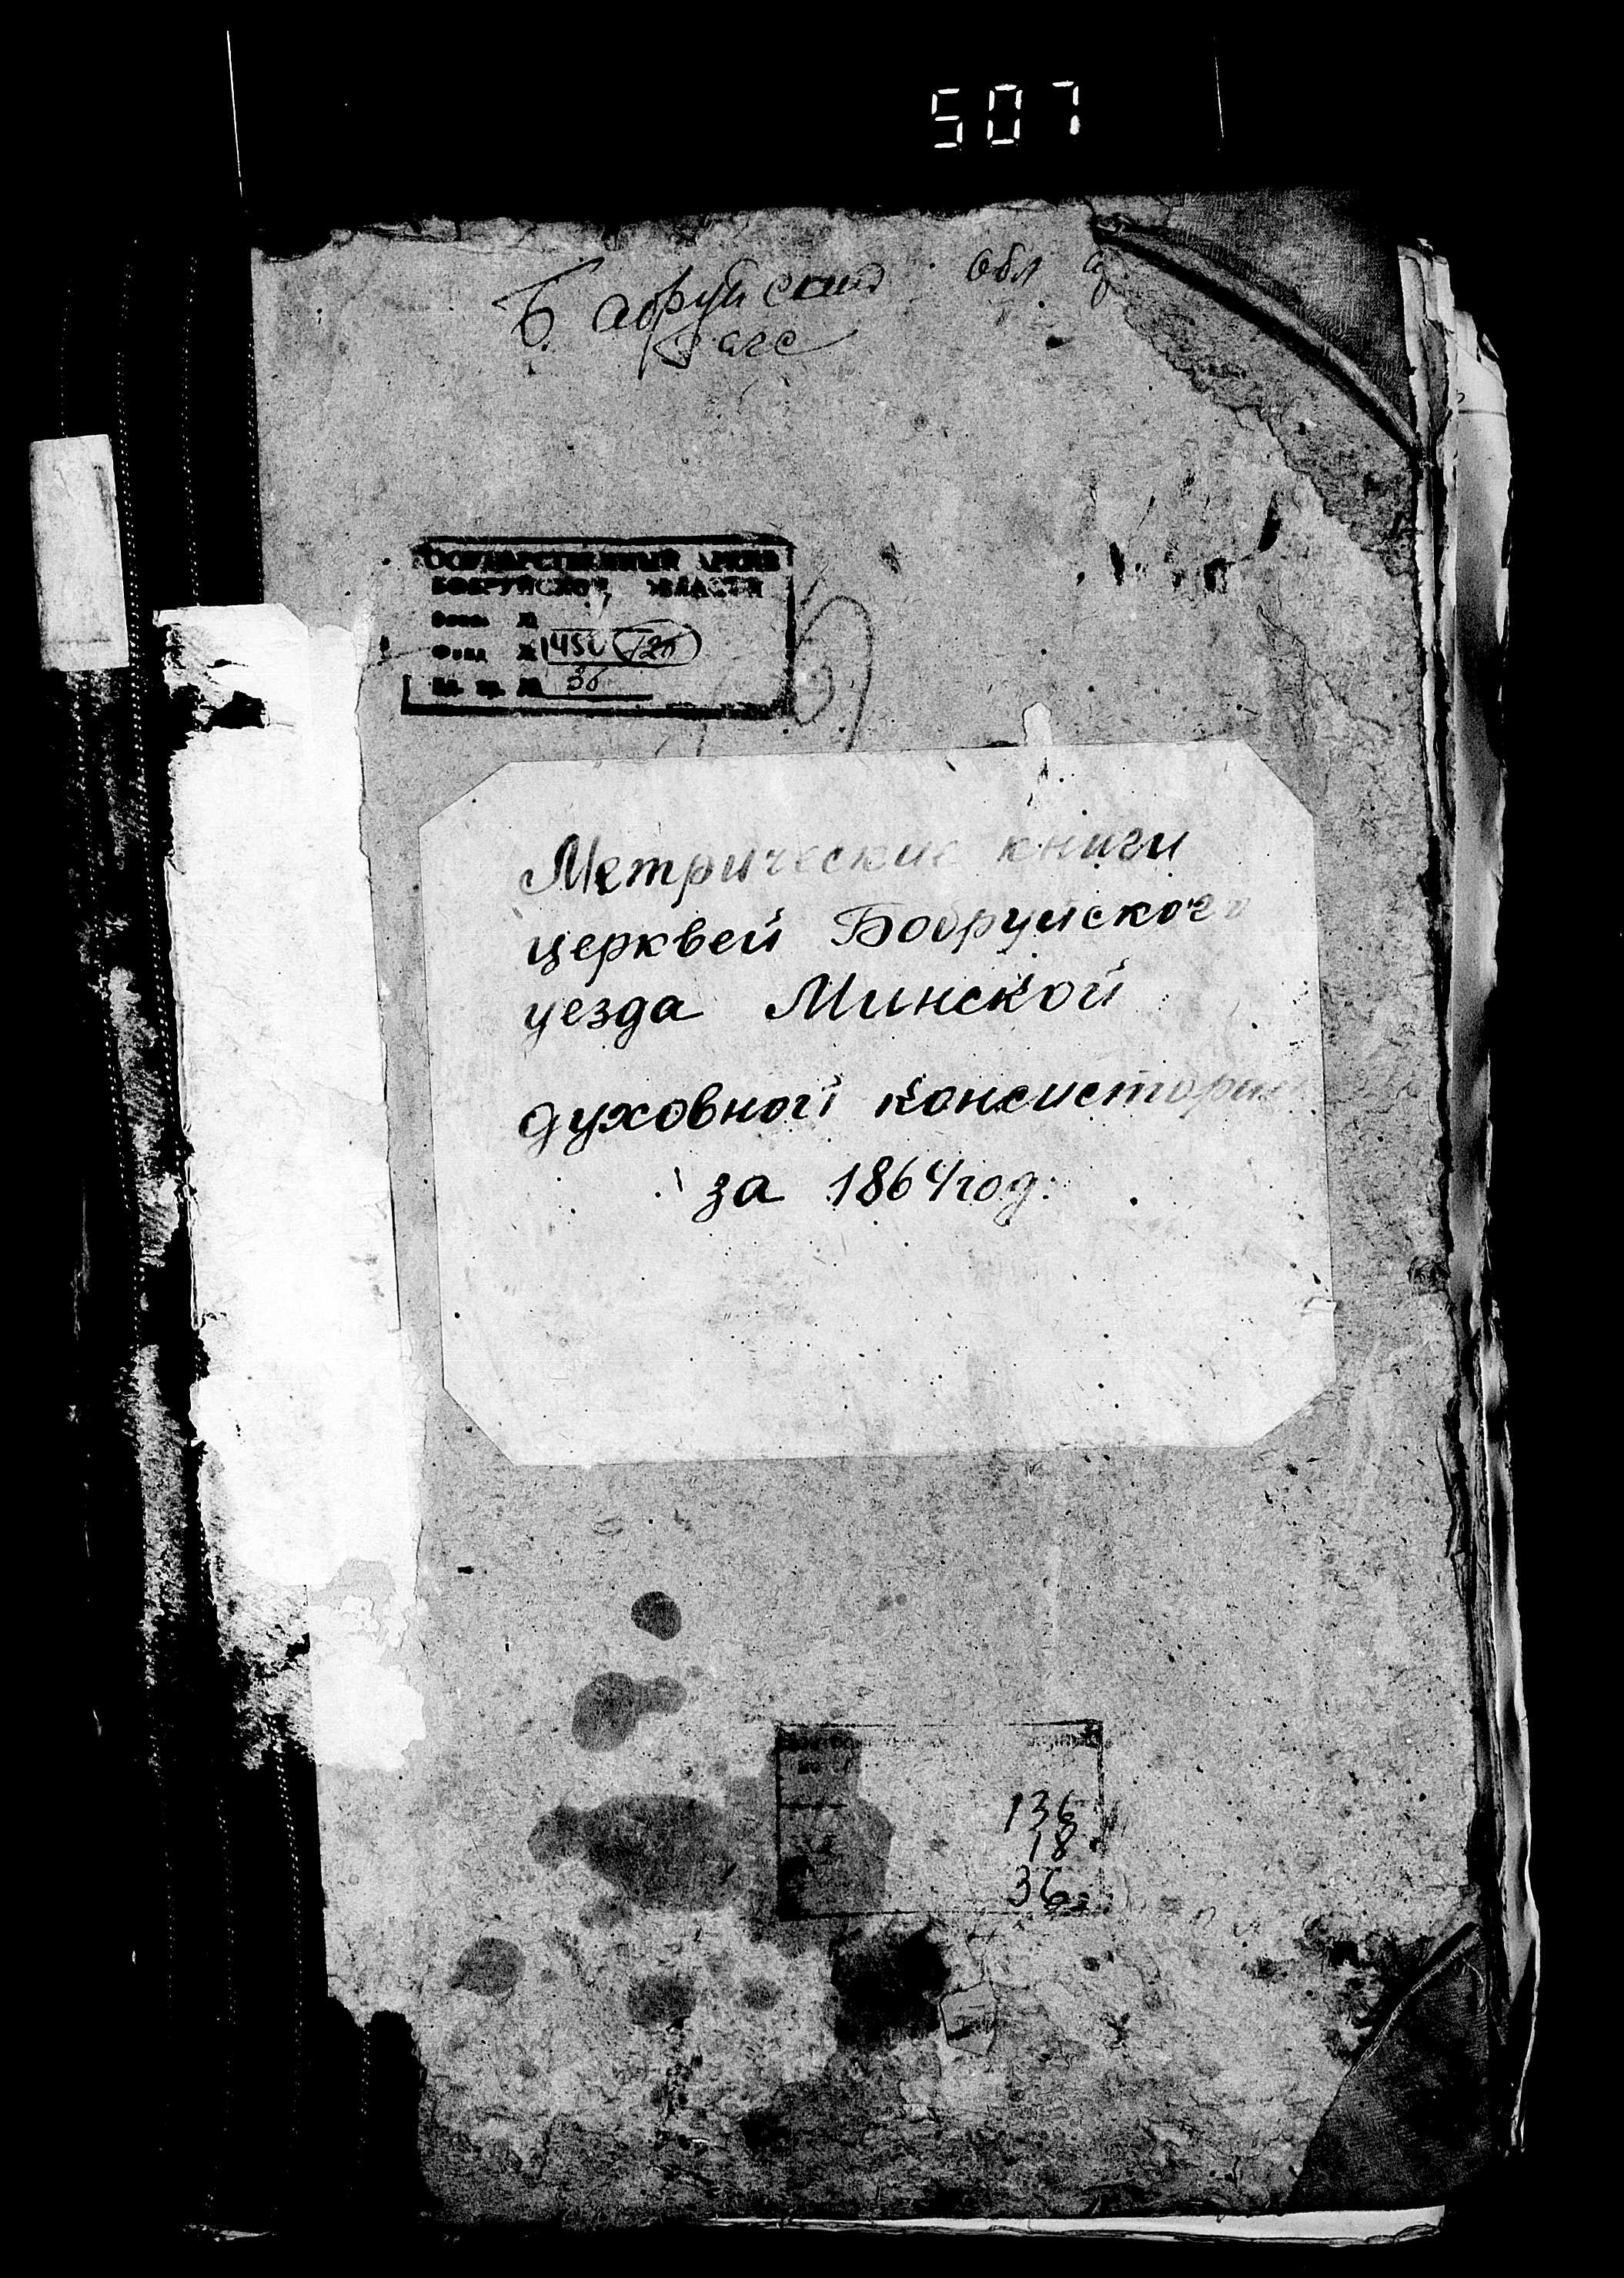 507
обл
загс
ГОСУДАРСТВЕННЫЙ АРХИВ
БОБРУЙСКОЙ ОБЛАСТИ
Фонд №
Ед. хр. № 36
Метрические книги
церквей Бобруйского
уезда Минской
духовной консистории
за 1864 год.
136
18
36